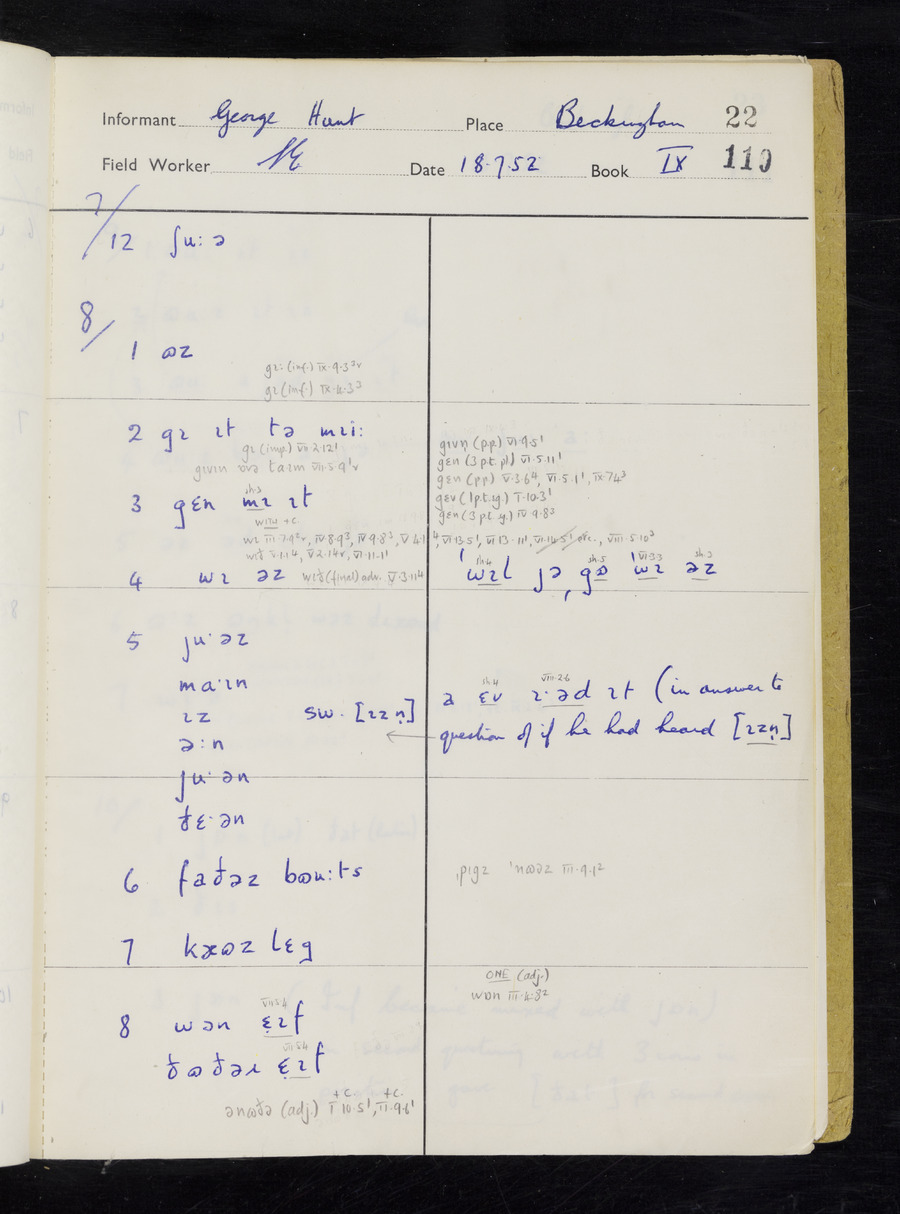 Informant George Hunt Place Beckingham 22
Field Worker Date 18.7.52 Book IX 110
7/
12 ʃu:ə
8/
1 ɷz
gɪ: (inf.) IX.9.3³v
gɪ (inf.) IX.4.3³
2 gɪ ɪt tə mɪi:
gɪ (imp.) VII.2.12¹
gɪvɪn ɒvə taɪm VII.5.9¹v
gɪvn̩ (p.p.) VI.9.5¹
gɛn (3 pt. pl.) VI.5.11¹
gɛn (pp.) V.3.6⁴, VI.5.1¹, IX.7.4³
gɛv (1 pt. sg.) I.10.3¹
gɛn (3 pt. sg.) IV.9.8³
3 gɛn mɪ ɪt
sh.3
WITH + C.
wɪ III.7.9²v, IV.8.9³, IV.9.8³, VI.13.5¹, VI.13.11¹, VI.14.5¹, VIII.5.10³
wɪð V.1.14, V.2.14v, VI.11.1¹
4 wɪ əz wɪð (final) adv. V.3.11⁴
sh.4 sh.5 VI.3.3 sh.3
ˈwɪl jə ˌgɷ ˈwɪ əz
5 ju·əz
ma·ɪn
ɪz sw. [ɪzn̩]
ə:n
ju·ən
ðɛ·ən
sh.4 VIII.2.6
a ɛv ɪ·əd ɪt (in answer to
question of if he had heard [ɪzn̩]
6 faðəz bɷu:ts
ˌpɪgz ˈnɷəz III.9.1²
7 kɹɷz lɛg
ONE (adj.)
wɒn III.4.8²
8 wɒn ɛɪf
VII.5.4
ðɷðəɹ ɛɪf
VII.5.4
+C. +C.
ənɷðə (adj.) I.10.5¹, II.9.6¹